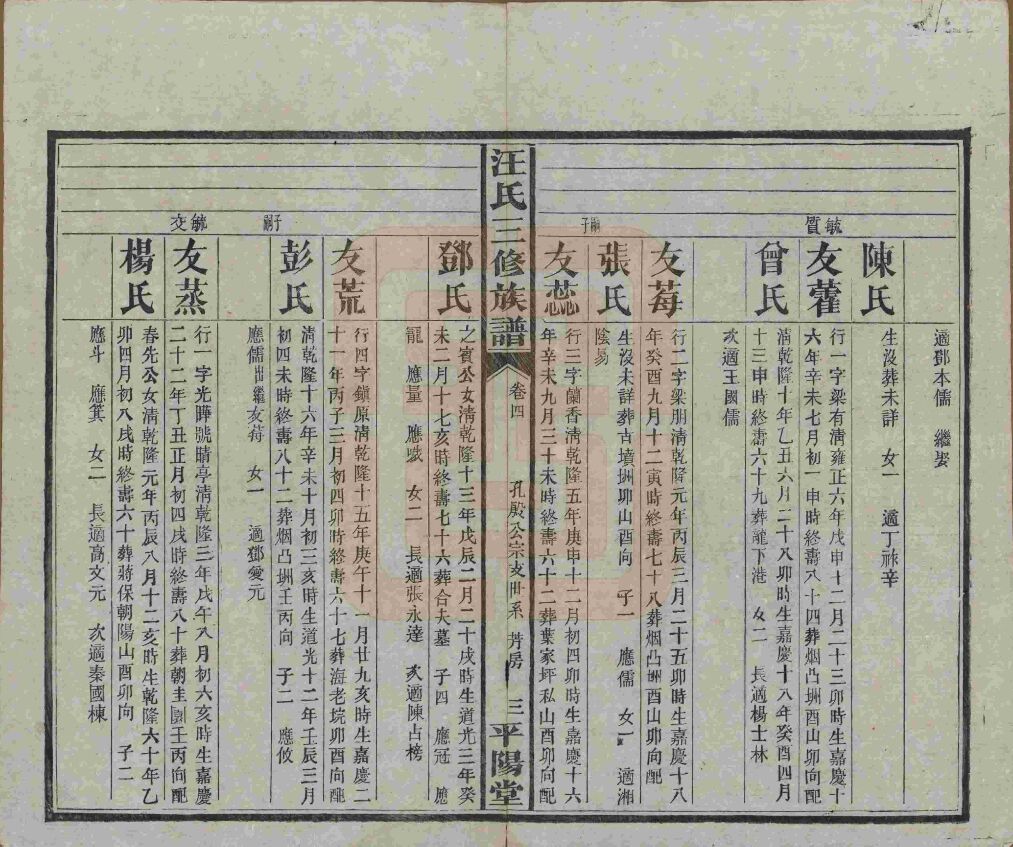 適鄧本儒　繼娶
陳氏
生沒葬未詳　女一　適丁祿辛
毓質
友藿
行一字梁有淸雍正六年戊申十二月二十三卯時生嘉慶十
六年辛未七月初一申時終壽八十四葬烟凸𡊮酉山卯向配
曾氏
淸乾隆十年乙丑六月二十八卯時生嘉慶十八年癸酉四月
十三申時終壽六十九葬龍下港　女二　長適楊士林
次適王國儒
友莓
行二字梁朋淸乾隆元年丙辰三月二十五卯時生嘉慶十八
年癸酉九月十二寅時終壽七十八葬烟凸𡊮酉山卯向配
張氏
生沒未詳葬吉墳𡊮卯山酉向　子一　應儒　女一　適湘
陰易
嗣子
友蕊
行三字蘭香淸乾隆五年庚申十二月初四卯時生嘉慶十六
年辛未九月三十未時終壽六十二葬葉家坪私山酉卯向配
汪氏三修族譜
卷四
孔殷公宗支世系　芳房
三
平陽堂
鄧氏
之賓公女淸乾隆十三年戊辰二月二十戌時生道光三年癸
未二月十七亥時終壽七十六葬合夫墓　子四　應冠　應
龍　應量　應崴　女二　長適張永達　次適陳占榜
友荒
行四字鎭原淸乾隆十五年庚午十一月廿九亥時生嘉慶二
十一年丙子三月初四卯時終壽六十七葬海老垸卯酉向配
子嗣
彭氏
淸乾隆十六年辛未十月初三亥時生道光十二年壬辰三月
初四未時終壽八十二葬烟凸𡊮壬丙向　子二　應攸
應儒出繼友莓　女一　適鄧愛元
毓交
友蒸
行一字光曄號晴亭淸乾隆三年戊午八月初六亥時生嘉慶
二十二年丁丑正月初四戌時終壽八十葬朝圭圓壬丙向配
楊氏
春先公女淸乾隆元年丙辰八月十二亥時生乾隆六十年乙
卯四月初八戌時終壽六十葬蔣保朝陽山酉卯向　子二
應斗　應箕　女二　長適高文元　次適秦國棟